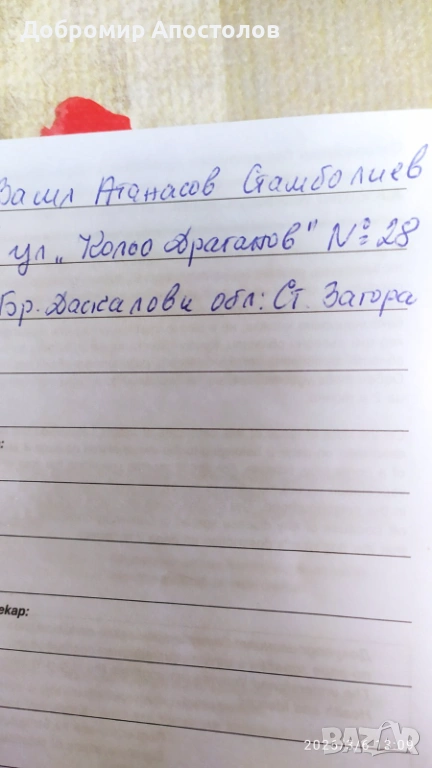 Добромир Апостолов
Васил Атанасов Стамболиев
ул „Кольо Драганов" № 28
Бр. Даскалови обл: Ст. Загора
:
екар:
BAZAR